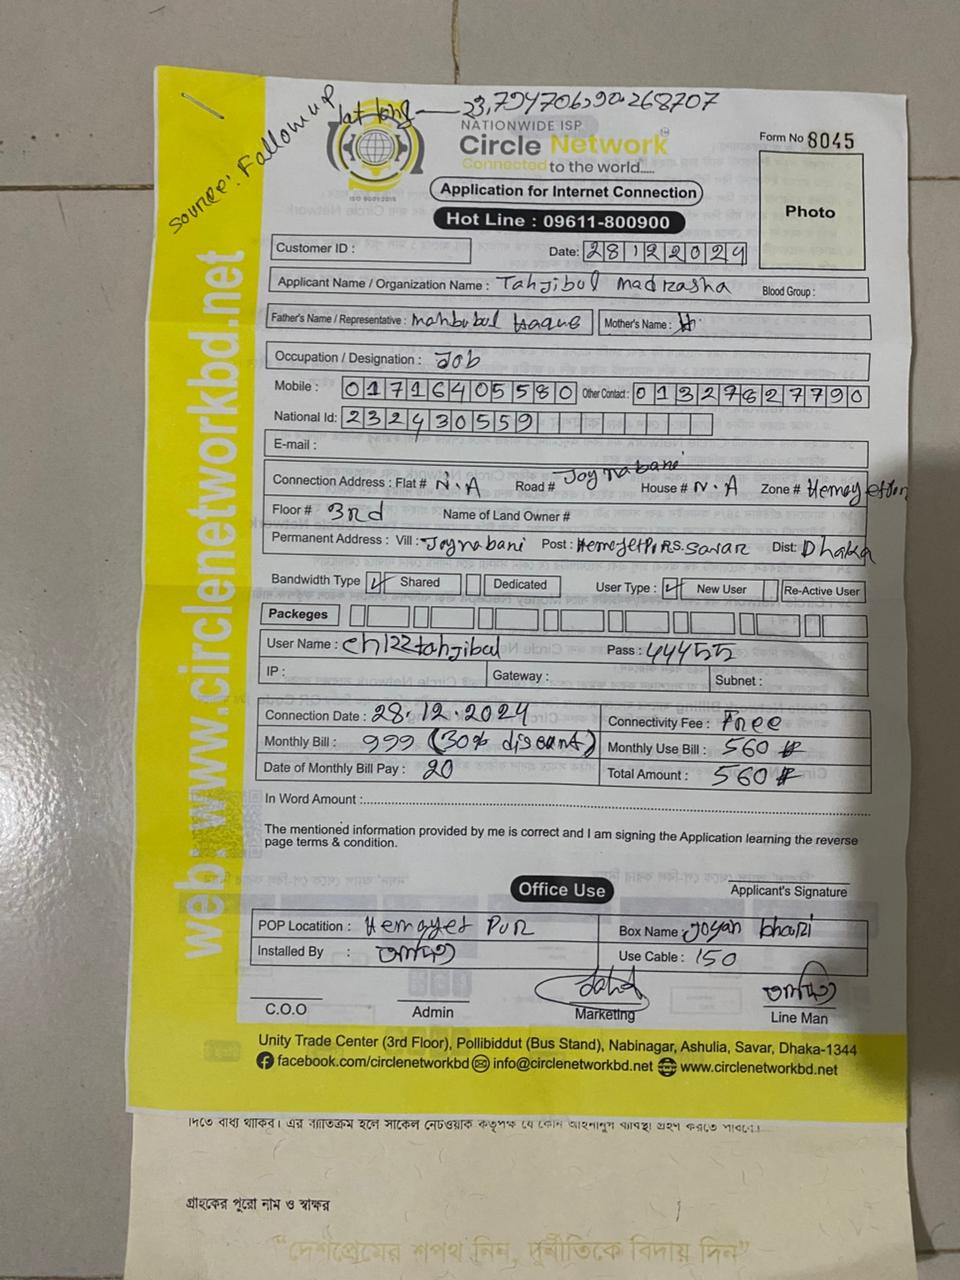 Source: Follow up
lat long — 23.794706,90.268707
NATIONWIDE ISP
Circle Network
Connected to the world.....
ISO 9001:2015
Form No 8045
Application for Internet Connection
Hot Line : 09611-800900
Photo
Customer ID :
Date: 28122024
Applicant Name / Organization Name : Tahjibul madrasha Blood Group :
Father's Name / Representative : mahbubul Haque Mother's Name :
Occupation / Designation : Job
Mobile : 01716405580 Other Contact : 01327827790
National Id: 232430559
E-mail :
Connection Address : Flat # N.A Road # Joynabani House # N.A Zone #
Floor # 3rd Name of Land Owner #
Permanent Address : Vill : Joynabani Post : Savar Dist: Dhaka
Bandwidth Type Shared Dedicated User Type : New User Re-Active User
Packeges
User Name : ch122tahjibal Pass : 44455
IP : Gateway : Subnet :
Connection Date : 28.12.2024 Connectivity Fee : Free
Monthly Bill : 999 (30% discant) Monthly Use Bill : 560
Date of Monthly Bill Pay : 20 Total Amount : 560
In Word Amount :
The mentioned information provided by me is correct and I am signing the Application learning the reverse
page terms & condition.
Office Use
Applicant's Signature
POP Locatition : Hemayet PUR Box Name : Joyan bhari
Installed By : Use Cable : 150
C.O.O Admin Marketing Line Man
Unity Trade Center (3rd Floor), Pollibiddut (Bus Stand), Nabinagar, Ashulia, Savar, Dhaka-1344
facebook.com/circlenetworkbd info@circlenetworkbd.net www.circlenetworkbd.net
web: www.circlenetworkbd.net
দিতে বাধ্য থাকিব। এর ব্যতিক্রম হলে সার্কেল নেটওয়াক কতৃপক্ষ যে কোন আইনানুগ ব্যবস্থা গ্রহণ করতে পারবে।
গ্রাহকের পুরো নাম ও স্বাক্ষর
"দেশপ্রেমের শপথ নিন, দুর্নীতিকে বিদায় দিন"